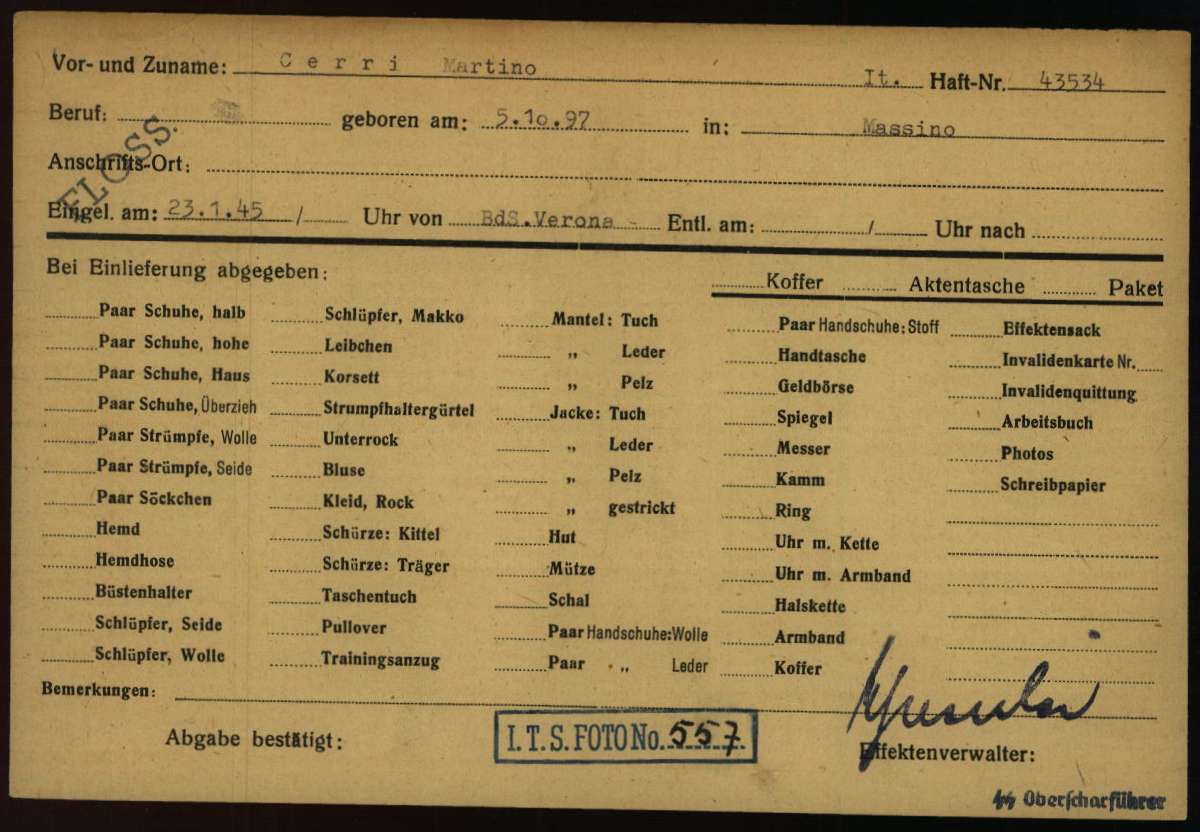 Vor- und Zuname: Cerri Martino It. Haft-Nr. 43534
Beruf: geboren am: 5.10.97 in: Massino
Anschrifts-Ort:
FLOSS.
Eingel. am: 23.1.45 / Uhr von BdS.Verona - Entl. am: / Uhr nach
Bei Einlieferung abgegeben: Koffer Aktentasche Paket
Paar Schuhe, halb Schlüpfer, Makko Mantel: Tuch Paar Handschuhe: Stoff Effektensack
Paar Schuhe, hohe Leibchen „ Leder Handtasche Invalidenkarte Nr.
Paar Schuhe, Haus Korsett „ Pelz Geldbörse Invalidenquittung
Paar Schuhe, Überzieh Strumpfhaltergürtel Jacke: Tuch Spiegel Arbeitsbuch
Paar Strümpfe, Wolle Unterrock „ Leder Messer Photos
Paar Strümpfe, Seide Bluse „ Pelz Kamm Schreibpapier
Paar Söckchen Kleid, Rock „ gestrickt Ring
Hemd Schürze: Kittel Hut Uhr m. Kette
Hemdhose Schürze: Träger Mütze Uhr m. Armband
Büstenhalter Taschentuch Schal Halskette
Schlüpfer, Seide Pullover Paar Handschuhe: Wolle Armband
Schlüpfer, Wolle Trainingsanzug Paar „ Leder Koffer
Bemerkungen:
Abgabe bestätigt: I.T.S. FOTO No. 557 Effektenverwalter:
SS Oberscharführer